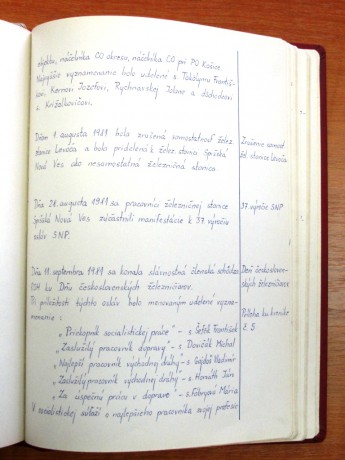 objektu, náčelníka CO okresu, náčelníka CO pri PO Košice.
Najvyššie vyznamenanie bolo udelené s. Tökölymu Františ-
kovi, Karnovi Jozefovi, Rychnavskej Jolane a dôchodcovi
s. Križalkovičovi.
Dňom 1. augusta 1981 bola zrušená samostatnosť želez.
stanice Levoča a bola pridelená k žel. stanici Spišská
Nová Ves ako nesamostatná železničná stanica.
Zrušenie samost.
žel. stanice Levoča
Dňa 28. augusta 1981 sa pracovníci železničnej stanice
Spišská Nová Ves zúčastnili manifestácie k 37. výročiu
osláv SNP.
37. výročie SNP
Dňa 11. septembra 1981 sa konala slávnostná členská schôdza
ROH ku Dňu československých železničiarov.
Pri príležitosti týchto osláv bolo menovaným udelené vyzna-
menanie:
Deň českosloven-
ských železničiarov
Príloha ku kronike
č. 5
„Priekopník socialistickej práce" - s. František
„Zaslúžilý pracovník dopravy" - s. Dovičák Michal
„Najlepší pracovník východnej dráhy" - s. Gajdoš Vladimír
„Zaslúžilý pracovník východnej dráhy" - s. Horváth Ján
„Za úspešnú prácu v doprave" - s. Fabryová Mária
V socialistickej súťaži o najlepšieho pracovníka svojej profesie